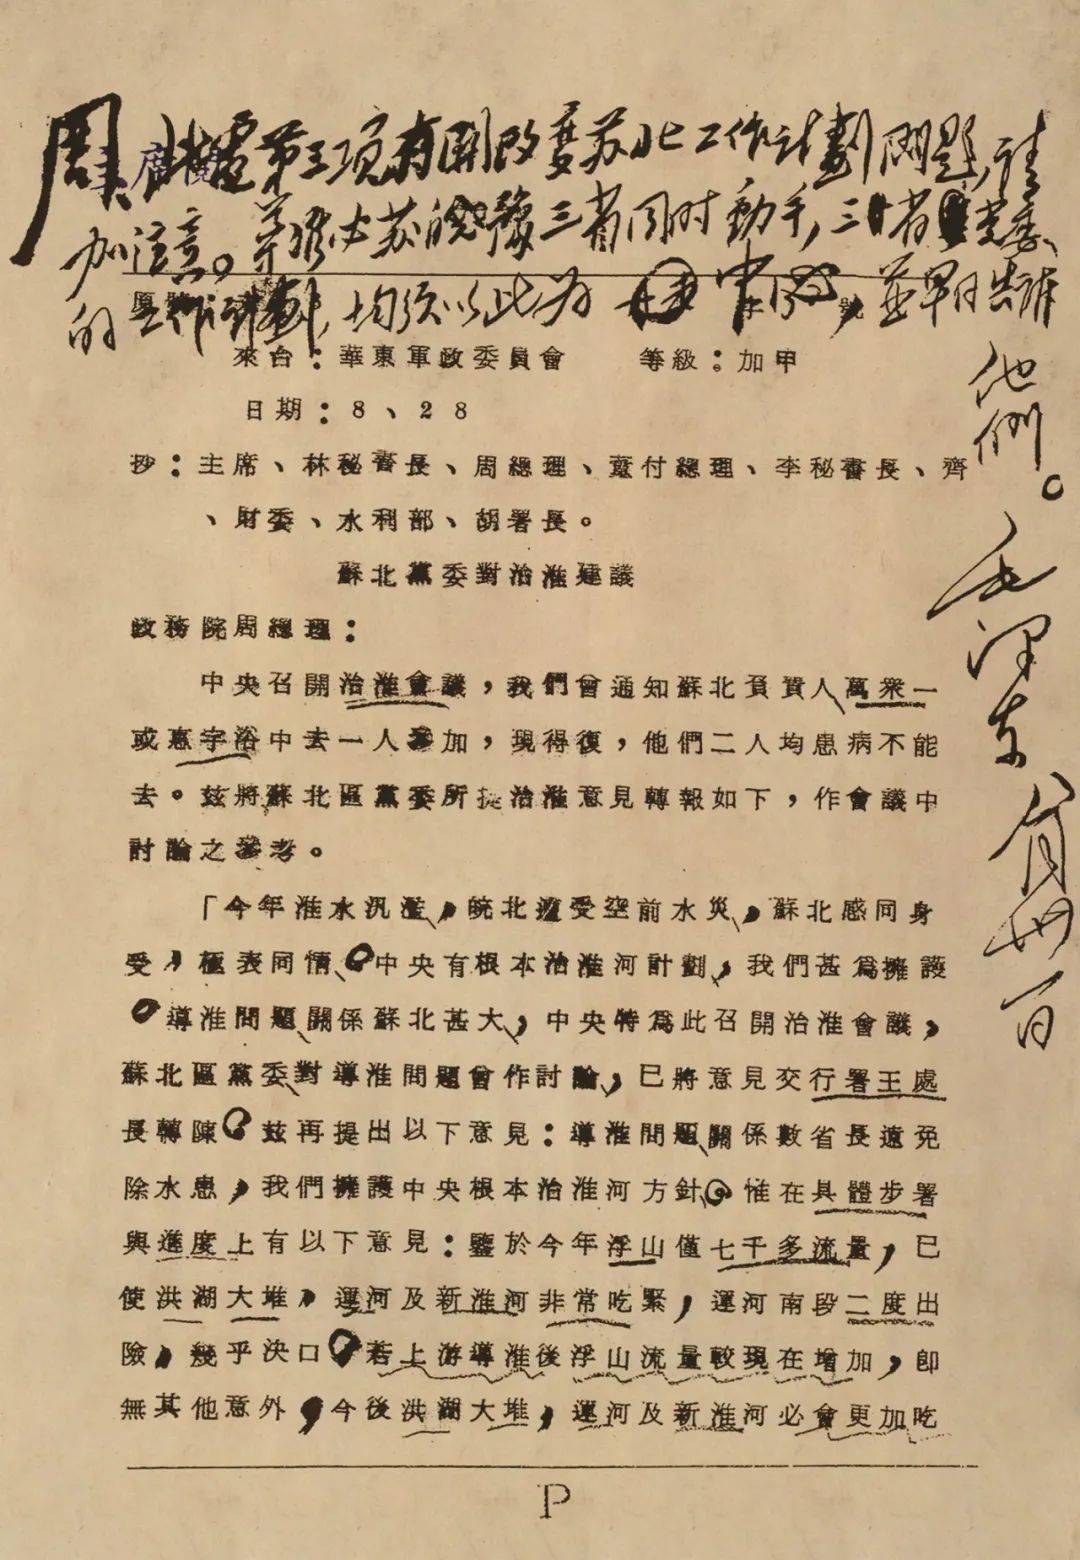 周：此電第三項有関改变苏北工作计劃问題，请
加注意。導淮必苏、皖、豫三省同时動手，三省党委
的工作計劃，均须以此为中心，並早日告诉
他们。
毛泽东
八月卅一日
來台：華東軍政委員會　等級：加甲
日期：8、28
抄：主席、林秘書長、周總理、董付總理、李秘書長、齊
、財委、水利部、胡署長。
蘇北黨委對治淮建議
政務院周總理：
中央召開治淮會議，我們曾通知蘇北負責人萬衆一
或惠宇浴中去一人參加，現得復，他們二人均患病不能
去。玆將蘇北區黨委所提治淮意見轉報如下，作會議中
討論之參考。
「今年淮水汎濫，皖北遭受空前水災，蘇北感同身
受，極表同情。中央有根本治淮河計劃，我們甚爲擁護
。導淮問題，關係蘇北甚大，中央特爲此召開治淮會議，
蘇北區黨委對導淮問題曾作討論，已將意見交行署王處
長轉陳。玆再提出以下意見：導淮問題，關係數省長遠免
除水患，我們擁護中央根本治淮河方針。惟在具體步署
與進度上有以下意見：鑒於今年浮山僅七千多流量，已
使洪湖大堆，運河及新淮河非常吃緊，運河南段二度出
險，幾乎決口。若上游導淮後浮山流量較現在增加，卽
無其他意外，今後洪湖大堆，運河及新淮河必會更加吃
P